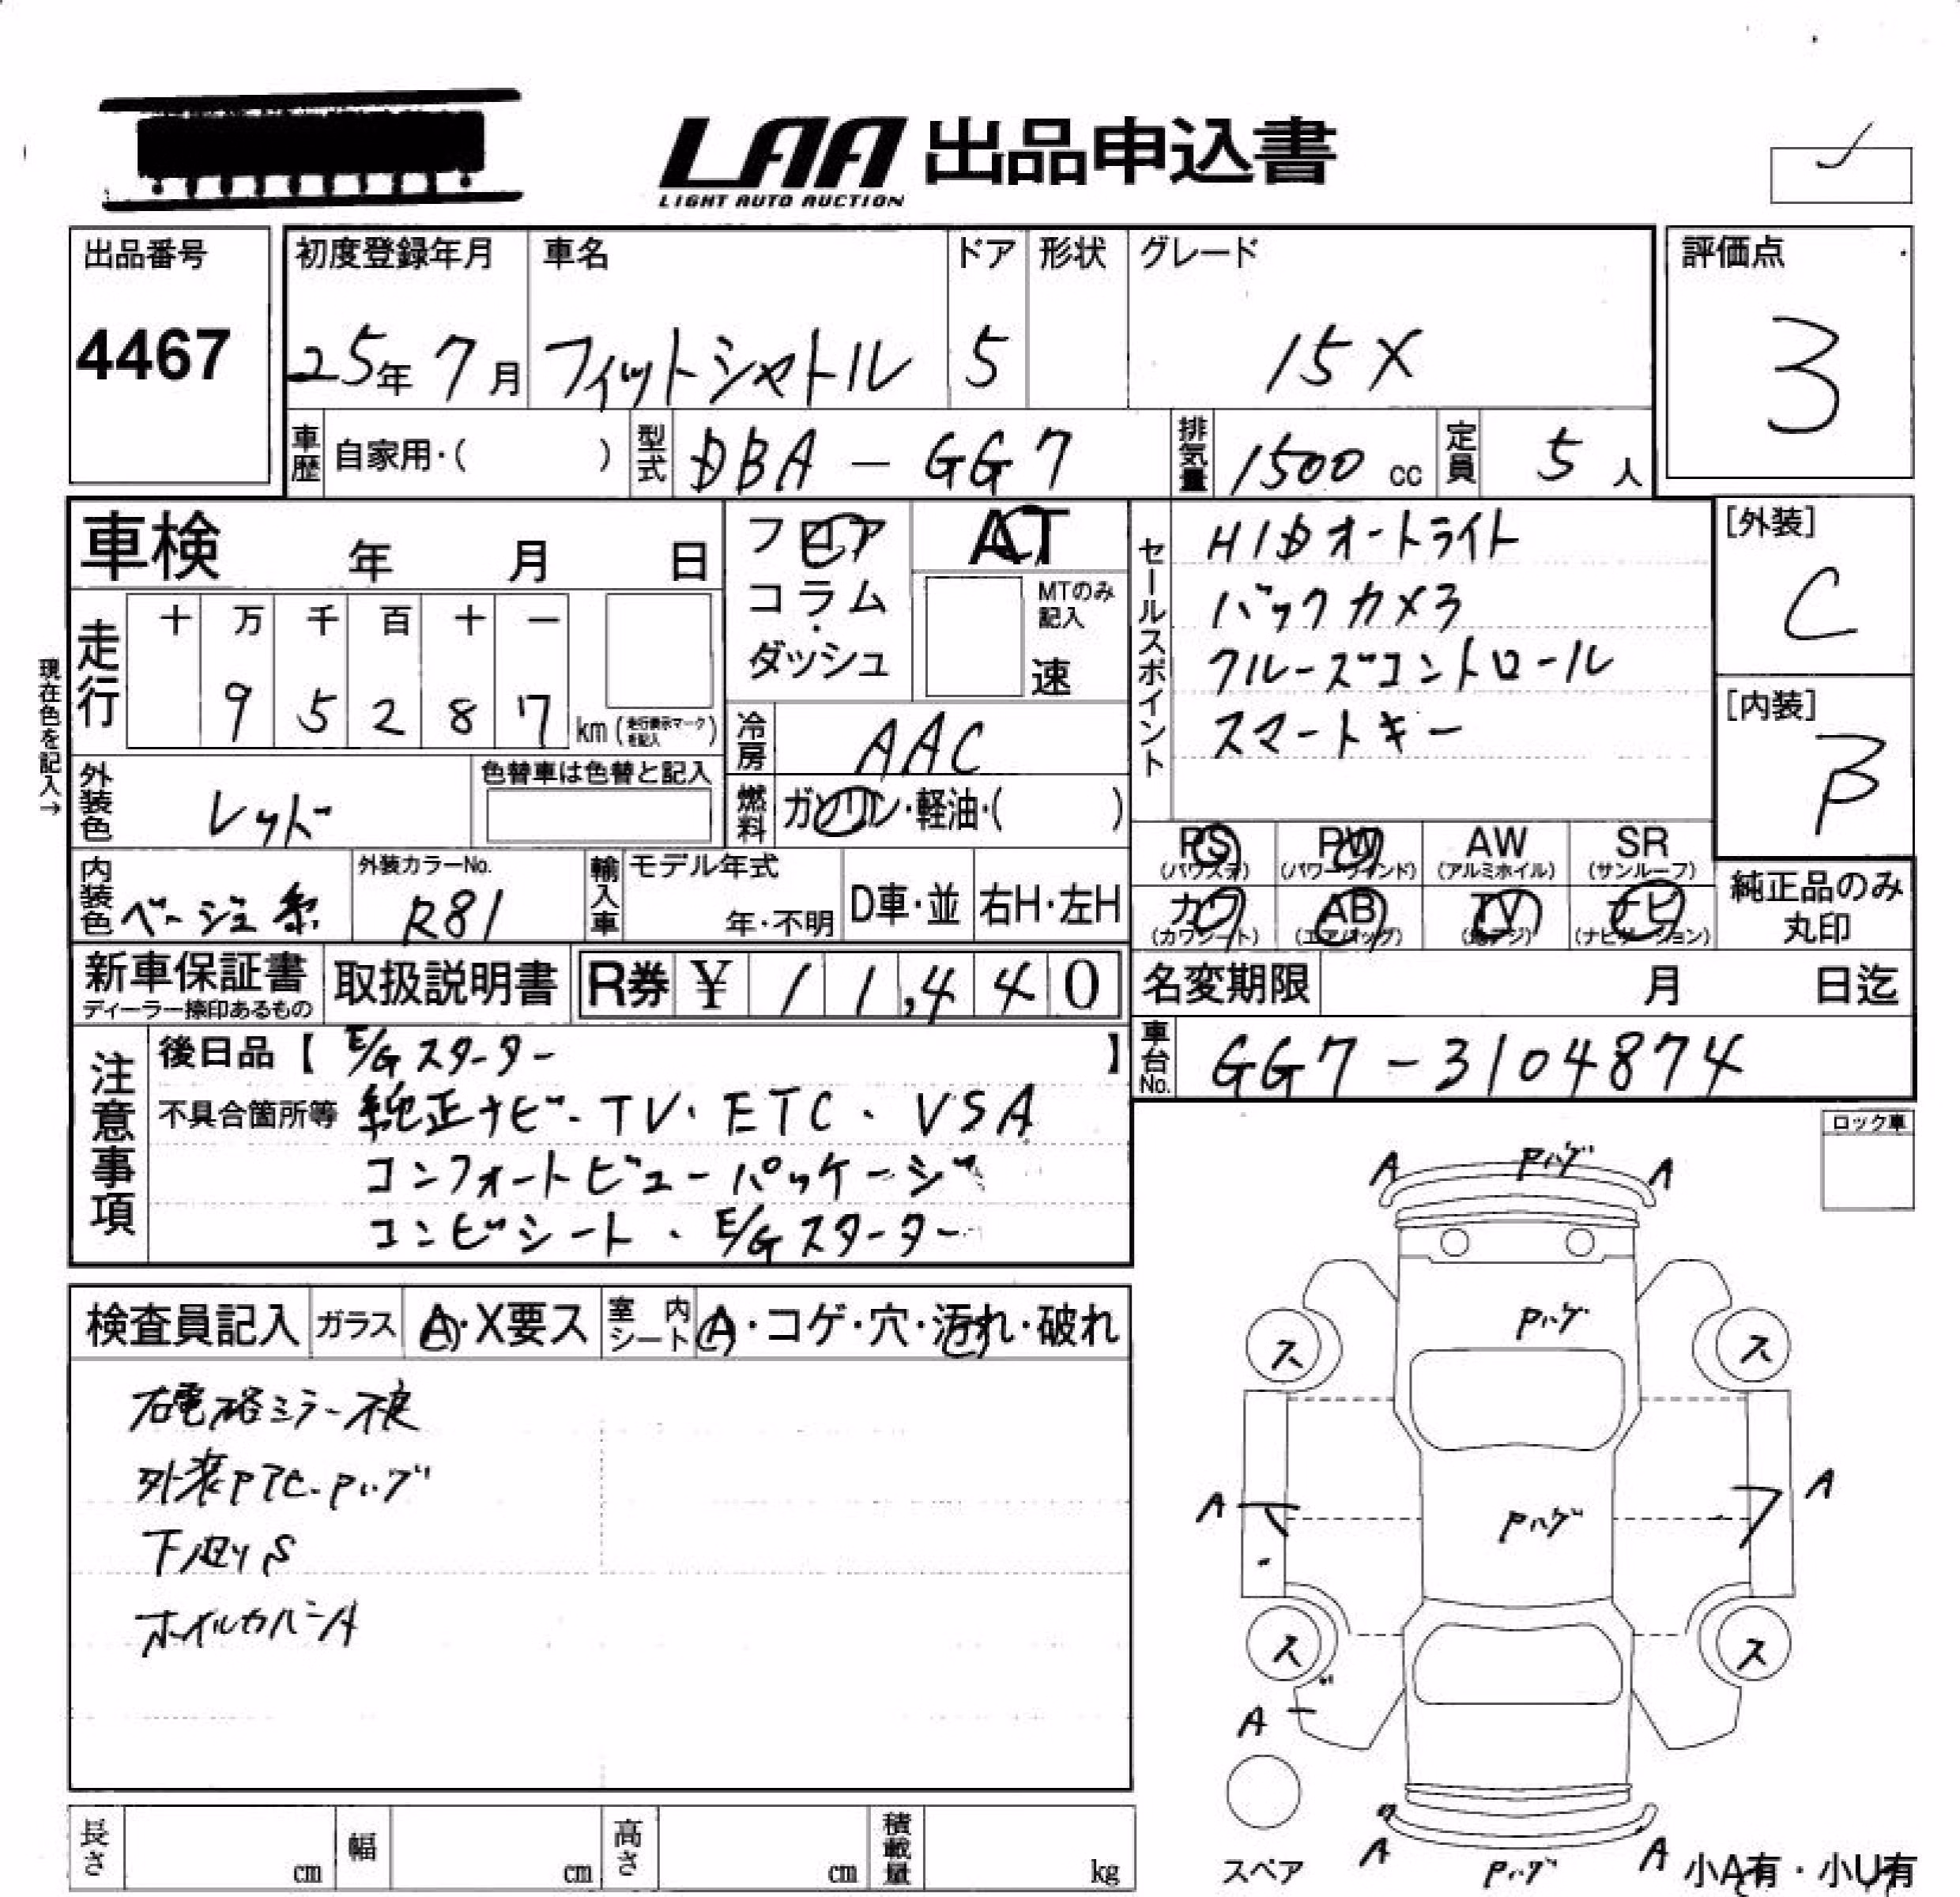 LAA 出品申込書
LIGHT AUTO AUCTION
出品番号
4467
初度登録年月 車名 ドア 形状 グレード
25年 7月 フィットシャトル 5 15X
評価点
3
車歴 自家用・( ) 型式 DBA-GG7 排気量 1500 cc 定員 5 人
車検 年 月 日
フロア
コラム
・
ダッシュ
AT
MTのみ
記入
速
セールスポイント
HIDオートライト
バックカメラ
クルーズコントロール
スマートキー
[外装]
C
[内装]
B
現在色を記入→
走行
十 万 千 百 十 一
9 5 2 8 7 km (走行表示マークを記入)
冷房 AAC
外装色 レッド
色替車は色替と記入
燃料 ガソリン・軽油・( )
PS (パワステ) PW (パワーウインド) AW (アルミホイル) SR (サンルーフ)
カワ (カワシート) AB (エアバッグ) TV (地デジ) ナビ (ナビゲーション)
純正品のみ
丸印
内装色 ベージュ系
外装カラーNo.
R81
輸入車 モデル年式
年・不明 D車・並 右H・左H
新車保証書
ディーラー捺印あるもの
取扱説明書
R券 ¥ 11,440
名変期限 月 日迄
車台No. GG7-3104874
注意事項
後日品【 E/Gスターター 】
不具合箇所等 純正ナビ・TV・ETC・VSA
コンフォートビューパッケージ
コンビシート・E/Gスターター
ロック車
検査員記入 ガラス A・X要ス 室内シート A・コゲ・穴・汚れ・破れ
右電格ミラー不良
外装PTC・Pハゲ
下廻りS
ホイルカバーA
A Pハゲ A
Pハゲ
ス ス
A Pハゲ A
ス ス
A
スペア
A Pハゲ A
小A有・小U有
長さ cm 幅 cm 高さ cm 積載量 kg